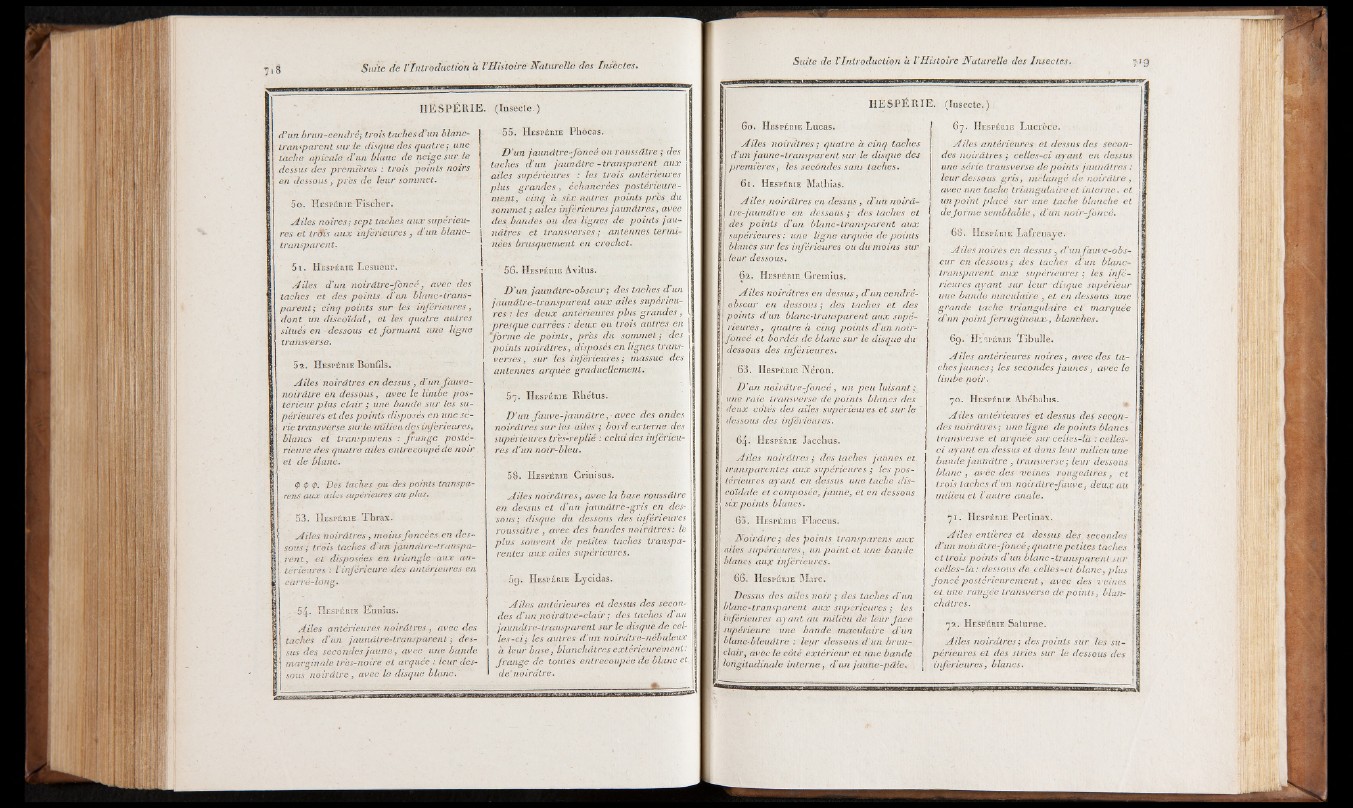 718
Suite de l'Introduction à l'Histoire Naturelle des Insectes.
HESPÉRIE. (Insecte.)
d'un brun-cendré; trois taches d'un blanc-
transparent sur le disque des quatre; une
tache apicale d'un blanc de neige sur le
dessus des premières : trois points noirs
en dessous, près de leur sommet.
50. HESPÉRIE Fischer.
Ailes noires; sept taches aux supérieu-
res et trois aux inférieures, d'un blanc-
transparent.
51. HESPÉRIE Lesueur.
Ailes d'un noirâtre-foncé, avec des
taches et des points d'un blanc-trans-
parent; cinq points sur les inférieures,
dont un discoïdal, et les quatre autres
situés en dessous et formant une ligne
transverse.
52. HESPÉRIE Bonfils.
Ailes noirâtres en dessus, d'un fauve-
noirâtre en dessous, avec le limbe pos-
térieur plus clair; une bande sur les su-
périeures et des points disposés en une sé-
rie transverse sur le milieu des inférieures,
blancs et transparens : frange posté-
rieure des quatre ailes entrecoupée de noir
et de blanc.
Φ Φ Φ. Des taches ou des points transpa-
rens aux ailes supérieures au plus.
53. HESPÉRIE Thrax.
Ailes noirâtres, moins foncées en des-
sous; trois taches d'un jaunâtre-transpa-
rent, et disposées en triangle aux an-
térieures : l'inférieure des antérieures en
carré-long.
54. HESPÉRIE Ennius.
Ailes antérieures noirâtres, avec des
taches d'un jaunâtre-transparent; des-
sus des secondes jaune, avec une bande
marginale très-noire et arquée : leur des-
sous noirâtre, avec le disque blanc.
55. HESPÉRIE Phocas.
D'un jaunâtre-foncé ou roussâtre; des
taches d'un jaunâtre-transparent aux
ailes supérieures : les trois antérieures
plus grandes, échancrées postérieure-
ment, cinq à six autres points près du
sommet; ailes inférieures jaunâtres, avec
des bandes ou des lignes de points jau-
nâtres et transverses; antennes termi-
nées brusquement en crochet.
56. HESPÉRIE Avitus.
D'un jaunâtre-obscur; des taches d'un
jaunâtre-transparent aux ailes supérieu-
res : les deux antérieures plus grandes,
presque carrées : deux ou trois autres en
forme de points, près du sommet; des
points noirâtres, disposés en lignes trans-
verses, sur les inférieures; massue des
antennes arquée graduellement.
57. HESPÉRIE Rhétus.
D'un fauve-jaunâtre, avec des ondes
noirâtres sur les ailes; bord externe des
supérieures très-replié : celui des inférieu-
res d'un noir-bleu.
58. HESPÉRIE Crinisus.
Ailes noirâtres, avec la base roussâtre
en dessus et d'un jaunâtre-gris en des-
sous; disque du dessous des inférieures
roussâtre, avec des bandes noirâtres: le
plus souvent de petites taches transpa-
rentes aux ailes supérieures.
59. HESPÉRIE Lycidas.
Ailes antérieures et dessus des secon-
des d'un noirâtre-clair; des taches d'un
jaunâtre-transparent sur le disque de cel-
les-ci; les autres d'un noirâtre-nébuleux
à leur base, blanchâtres extérieurement:
frange de toutes entrecoupée de blanc et
de noirâtre.
Suite de l'Introduction à l'Histoire Naturelle des Insectes.
719
HESPÉRIE. (Insecte.)
60. HESPÉRIE Lucas.
Ailes noirâtres; quatre à cinq taches
d'un jaune-transparent sur le disque des
premières, les secondes sans taches.
61. HESPÉRIE Mathias.
Ailes noirâtres en dessus, d'un noirâ-
tre-jaunâtre en dessous; des taches et
des points d'un blanc-transparent aux
supérieures: une ligne arquée de points
blancs sur les inférieures ou du moins sur
leur dessous.
62. HESPÉRIE Gremius.
Ailes noirâtres en dessus, d'un cendré-
obscur en dessous; des taches et des
points d'un blanc-transparent aux supé-
rieures, quatre à cinq points d'un noir-
foncé et bordés de blanc sur le disque du
dessous des inférieures.
63. HESPÉRIE Néron.
D'un noirâtre-foncé, un peu luisant;
une raie transverse de points blancs des
deux côtés des ailes supérieures et sur le
dessous des inférieures.
64. HESPÉRIE Jacchus.
Ailes noirâtres; des taches jaunes et
transparentes aux supérieures; les pos-
térieures ayant en dessus une tache dis-
coïdale et composée, jaune, et en dessous
six points blancs.
65. HESPÉRIE Flaccus.
Noirâtre; des points transparens aux
ailes supérieures, un point et une bande
blancs aux inférieures.
66. HESPÉRIE Marc.
Dessus des ailes noir; des taches d'un
blanc-transparent aux supérieures; les
inférieures ayant au milieu de leur face
supérieure une bande maculaire d'un
blanc-bleuâtre : leur dessous d'un brun-
clair, avec le côté extérieur et une bande
longitudinale interne, d'un jaune-pâle.
67. HESPÉRIE Lucrèce.
Ailes antérieures et dessus des secon-
des noirâtres; celles-ci ayant en dessus
une série transverse de points jaunâtres:
leur dessous gris, mélangé de noirâtre,
avec une tache triangulaire et interne, et
un point placé sur une tache blanche et
de forme semblable, d'un noir-foncé.
68. HESPÉRIE Lafrenaye.
Ailes noires en dessus, d'un fauve-obs-
cur en dessous; des taches d'un blanc-
transparent aux supérieures; les infé-
rieures ayant sur leur disque supérieur
une bande maculaire, et en dessous une
grande tache triangulaire et marquée
d'un point ferrugineux, blanches.
69. HESPÉRIE Tibulle.
Ailes antérieures noires, avec des ta-
ches jaunes; les secondes jaunes, avec le
limbe noir.
70. HESPÉRIE Ahébalus.
Ailes antérieures et dessus des secon-
des noirâtres; une ligne de points blancs
transverse et arquée sur celles-là : celles-
ci ayant en dessus et dans leur milieu une
bande jaunâtre, transverse; leur dessous
blanc, avec des veines rougeâtres, et
trois taches d'un noirâtre-fauve, deux au
milieu et l'autre anale.
71. HESPÉRIE Pertinax.
Ailes entières et dessus des secondes
d'un noirâtre-foncé; quatre petites taches
et trois points d'un blanc-transparent sur
celles-là: dessous de celles-ci blanc, plus
foncé postérieurement, avec des veines
et une rangée transverse de points, blan-
châtres.
72. HESPÉRIE Saturne.
Ailes noirâtres; des points sur les su-
périeures et des stries sur le dessous des
inférieures, blancs.